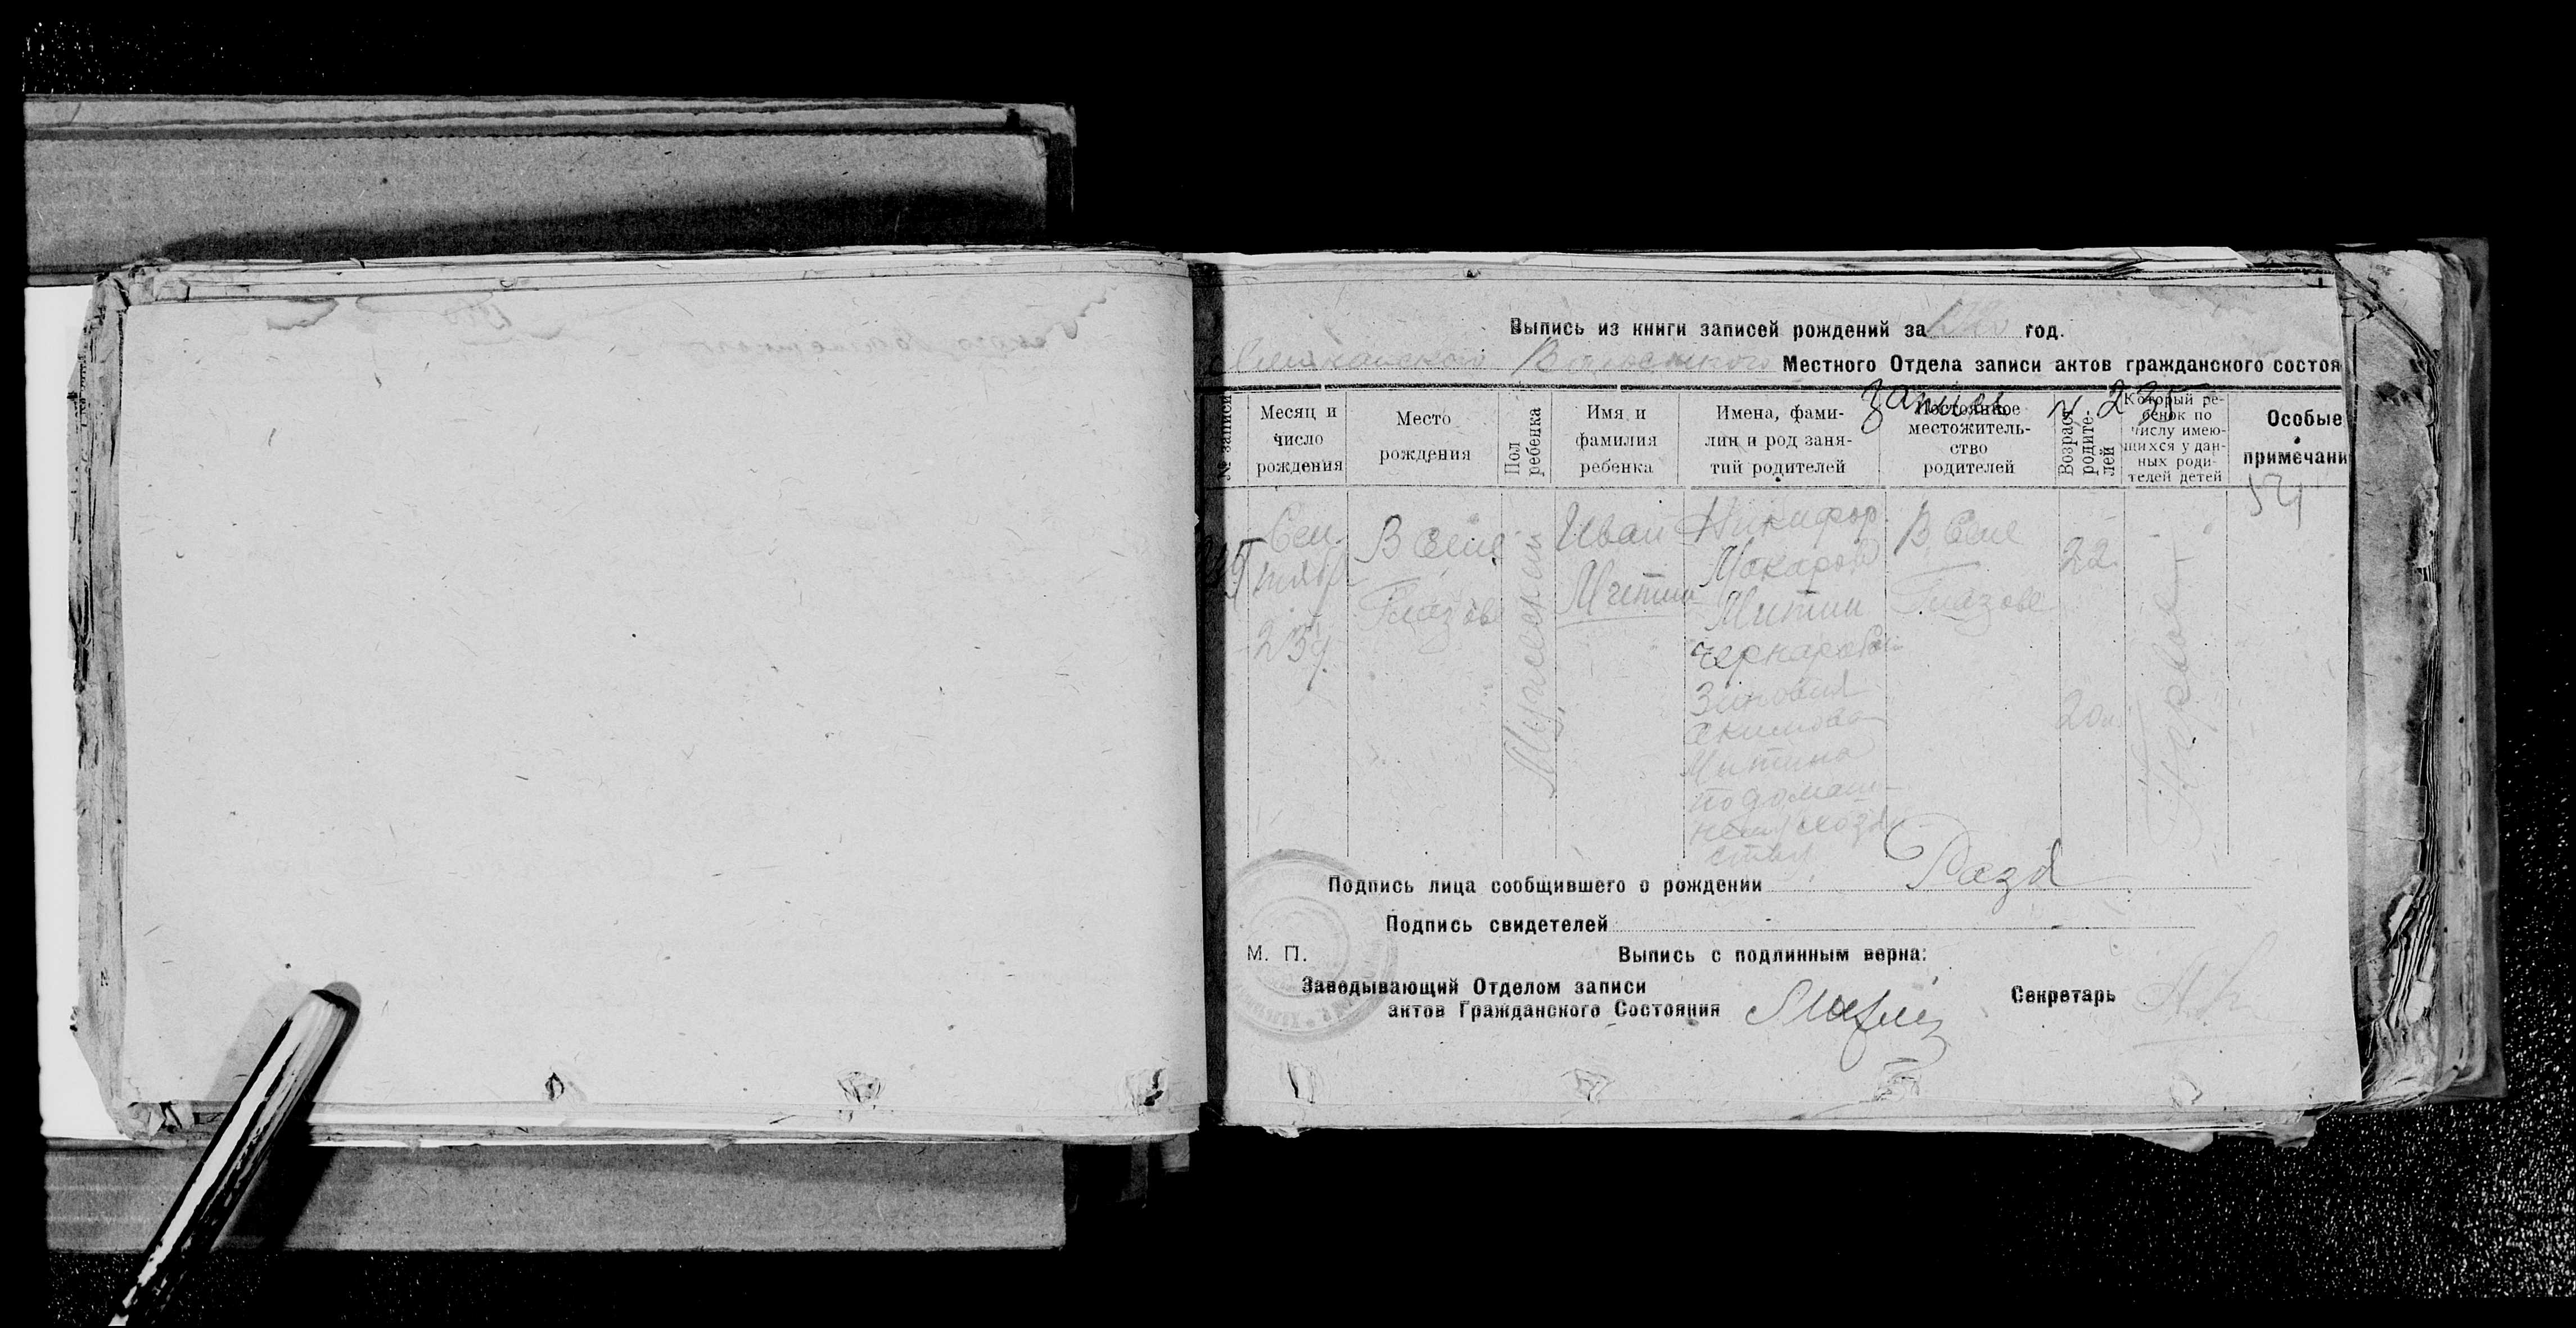 Выпись из книги записей рождений за год.
Волостного Местного Отдела записи актов гражданского состоя
запись N 235
№ записи
Месяц и
число
рождения
Место
рождения
Пол
ребенка
Имя и
фамилия
ребенка
Имена, фами-
лии и род заня-
тий родителей
Постоянное
местожитель-
ство
родителей
Возраст
родите-
лей
Который ре-
бенок по
числу имею-
щихся у дан-
ных роди-
телей детей
Особые
примечани
54
Сен
тября
В Селе
Глазове
Мужеский
Иван
Митин
Никифор
Макаров
Митин
Зиновия
Акимова
Митина
по домаш-
нему хозяй
ства
В Селе
Глазове
22
20л
Первый
Подпись лица сообщившего о рождении
Подпись свидетелей
М. П.
Выпись с подлинным верна:
Заведывающий Отделом записи
актов Гражданского Состояния
Секретарь